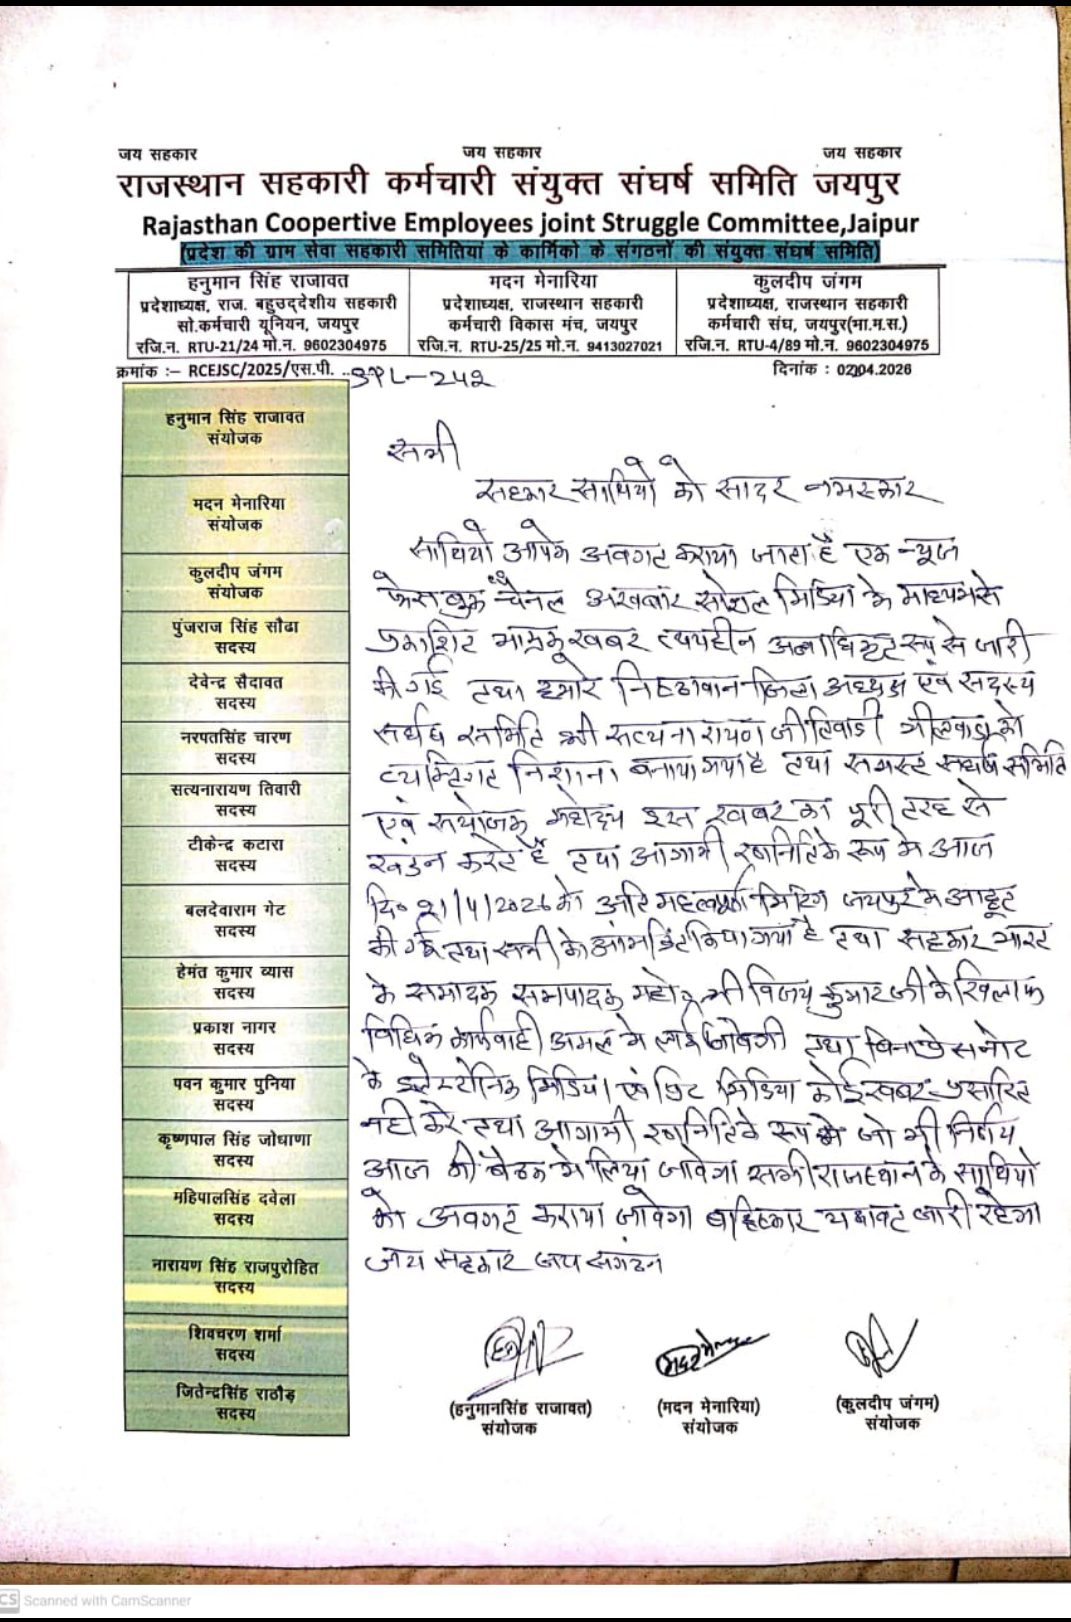 जय सहकार जय सहकार जय सहकार
राजस्थान सहकारी कर्मचारी संयुक्त संघर्ष समिति जयपुर
Rajasthan Coopertive Employees joint Struggle Committee,Jaipur
(प्रदेश की ग्राम सेवा सहकारी समितियां के कार्मिको के संगठनों की संयुक्त संघर्ष समिति)
हनुमान सिंह राजावत
प्रदेशाध्यक्ष, राज. बहुउद्देशीय सहकारी
सो.कर्मचारी यूनियन, जयपुर
रजि.न. RTU-21/24 मो.न. 9602304975
मदन मेनारिया
प्रदेशाध्यक्ष, राजस्थान सहकारी
कर्मचारी विकास मंच, जयपुर
रजि.न. RTU-25/25 मो.न. 9413027021
कुलदीप जंगम
प्रदेशाध्यक्ष, राजस्थान सहकारी
कर्मचारी संघ, जयपुर(भा.म.स.)
रजि.न. RTU-4/89 मो.न. 9602304975
क्रमांक :– RCEJSC/2025/एस.पी. ..SPL-242
दिनांक : .04.2026
हनुमान सिंह राजावत
संयोजक
मदन मेनारिया
संयोजक
कुलदीप जंगम
संयोजक
पुंजराज सिंह सौढा
सदस्य
देवेन्द्र सैदावत
सदस्य
नरपतसिंह चारण
सदस्य
सत्यनारायण तिवारी
सदस्य
टीकेन्द्र कटारा
सदस्य
बलदेवाराम गेट
सदस्य
हेमंत कुमार व्यास
सदस्य
प्रकाश नागर
सदस्य
पवन कुमार पुनिया
सदस्य
कृष्णपाल सिंह जोधाणा
सदस्य
महिपालसिंह दवेला
सदस्य
नारायण सिंह राजपुरोहित
सदस्य
शिवचरण शर्मा
सदस्य
जितेन्द्रसिंह राठौड़
सदस्य
सभी
सहकार साथियो को सादर नमस्कार
साथियो आपको अवगत कराया जाता है एक न्यूज
फेसबुक चैनल अखबार सोशल मिडिया के माध्यम से
प्रकाशित भ्रामक खबर तथ्यहीन अनाधिकृत रूप से जारी
की गई तथा हमारे निष्ठावान जिला अध्यक्ष एवं सदस्य
संर्घष समिति श्री सत्यनारायण जी तिवाडी भीलवाडा को
व्यक्तिगत निशाना बनाया गया है तथा समस्त संघर्ष समिति
एवं संयोजक महोदय इस खबर का पूरी तरह से
खंडन करते है तथा आगामी रणनिति के रूप मे आज
दि० 21/4/2026 को अति महत्वपूर्ण मिटिंग जयपुर मे आहूत
की गई तथा सभी को आंमत्रित किया गया है तथा सहकार भारत
के सम्पादक महोदय श्री विजय कुमार जी के खिलाफ
विधिक कार्यवाही अमल मे लाई जावेगी तथा बिना प्रेस नोट
के इलेक्ट्रोनिक मिडिया एवं प्रिंट मिडिया कोई खबर प्रसारित
नही करे तथा आगामी रणनिति के रूप मे जो भी निर्णय
आज की बैठक मे लिया जावेगा सभी राजस्थान के साथियो
को अवगत कराया जावेगा बहिष्कार यथावत जारी रहेगा
जय सहकार जय संगठन
(हनुमानसिंह राजावत)
संयोजक
(मदन मेनारिया)
संयोजक
(कुलदीप जंगम)
संयोजक
CS Scanned with CamScanner